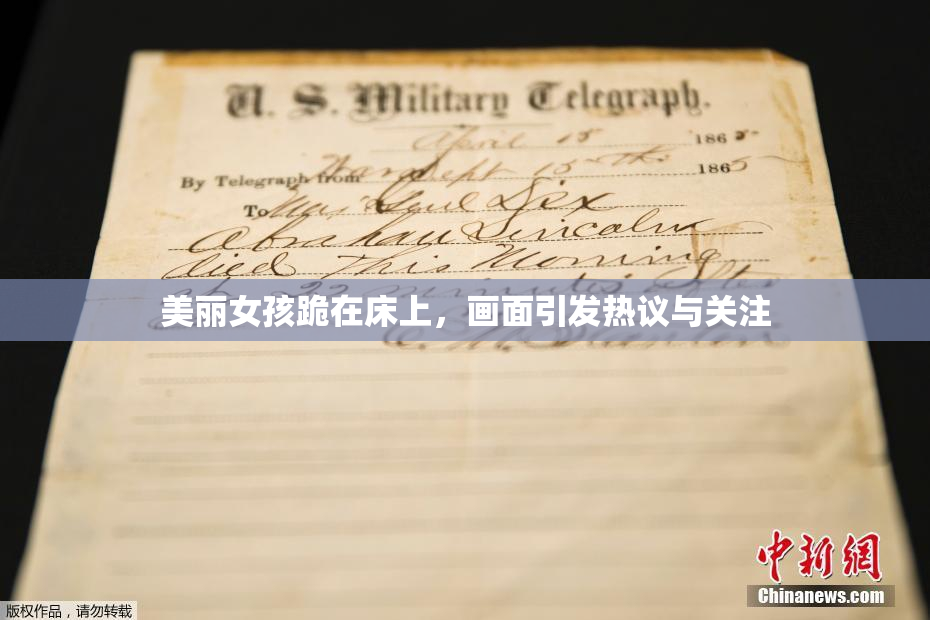 U. S. Military Telegraph.
April 15 1865
By Telegraph from War Dept 15th 1865
To Maj Genl Dix
Abraham Lincoln
died This Morning
at 22 minutes after
美丽女孩跪在床上，画面引发热议与关注
E. M. Stanton
中新网
Chinanews.com
版权作品，请勿转载